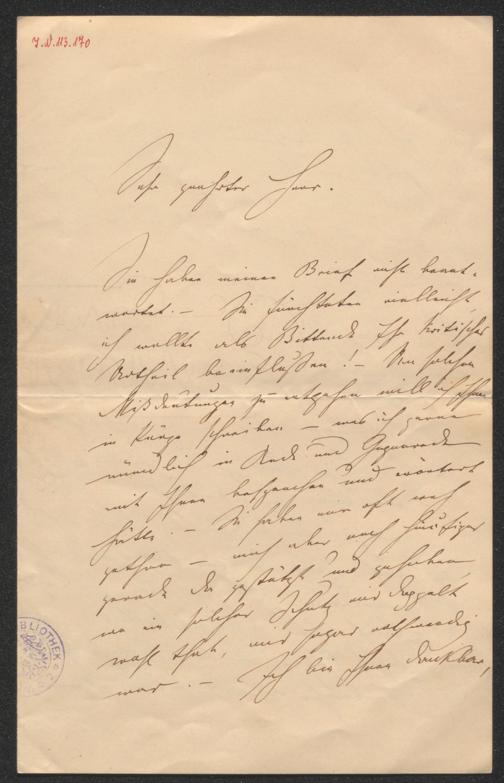 J.N. 113.170
Sehr geehrter Herr.
Sie haben meinen Brief nicht beant-
wortet. – Sie fürchteten vielleicht
ich wollte als Bittende Ihr kritisches
Urtheil beeinflußen! – Um solchen
Mißdeutungen zu entgehen will ich Ihnen
in Kürze schreiben – was ich gerne
mündlich in Rede und Gegenrede
mit Ihnen besprochen und erörtert
hätte. – Sie haben mir oft weh
gethan – mich aber noch häufiger
gerade da gestützt und gehoben,
wo ein solcher Schutz mir doppelt
wohl that, und sogar nothwendig
war. – Ich bin Ihnen dankbar,
BIBLIOTHEK